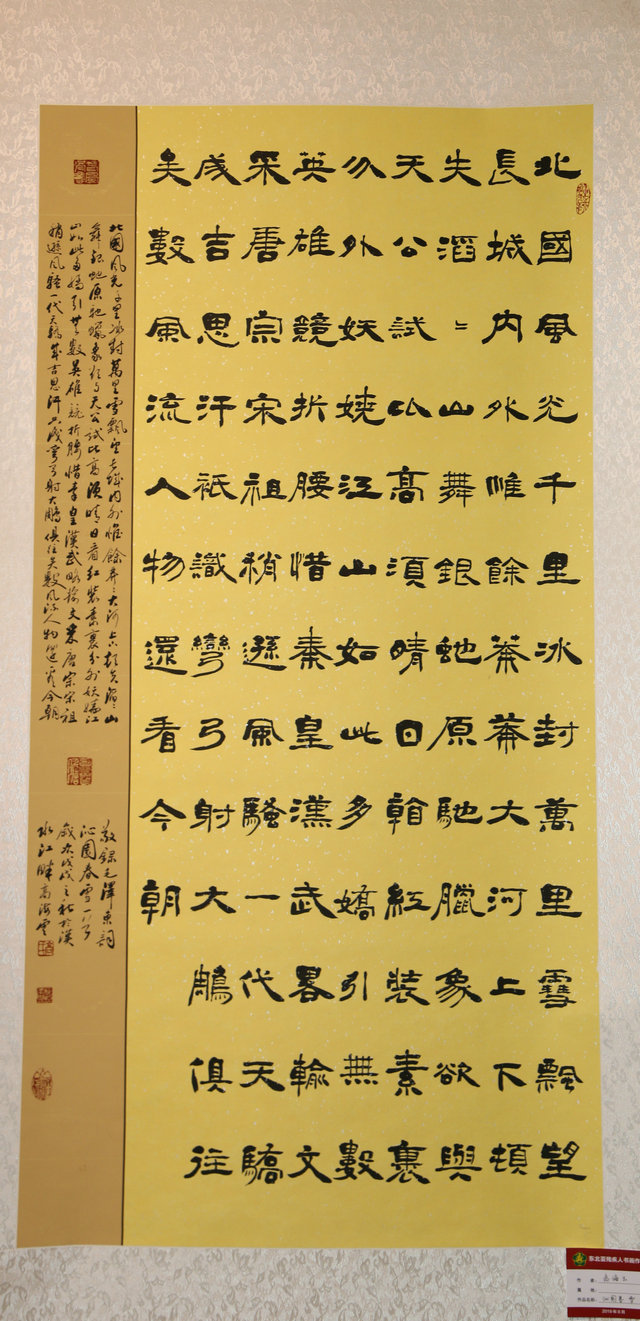 北國風光千里冰封萬里雪飄望
長城内外惟餘莽莽大河上下頓
失滔〻山舞銀蛇原馳臘象欲與
天公試比高須晴日看紅裝素裹
分外妖嬈江山如此多嬌引無數
英雄競折腰惜秦皇漢武畧輸文
采唐宗宋祖稍遜風騷一代天驕
成吉思汗衹識彎弓射大鵰俱往
矣數風流人物還看今朝
北國風光千里冰封萬里雪飄望長城内外惟餘莽〻大河上下頓失滔〻山
舞銀蛇原馳蠟象欲與天公試比高須晴日看紅裝素裹分外妖嬈江
山如此多嬌引無數英雄競折腰惜秦皇漢武略輸文采唐宗宋祖
稍遜風騷一代天驕成吉思汗只識彎弓射大鵰俱往矣數風流人物還看今朝
敬録毛澤東詞
沁園春雪一首
歲次戊戌之秋於漢
水江畔高海雲
东北亚残疾人书画作
作 者：高海云
属 地：
作品名称：沁园春 雪